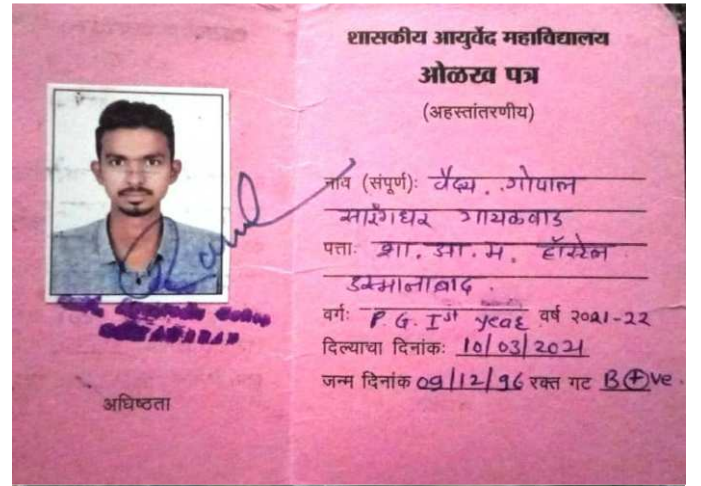 शासकीय आयुर्वेद महाविद्यालय
ओळख पत्र
(अहस्तांतरणीय)
नाव (संपूर्ण): वैद्य. गोपाल
सारंगधर गायकवाड
पत्ता: शा. आ. म. हॉस्टेल
उस्मानाबाद.
वर्ग: P. G. Ist year वर्ष २०२१-२२
दिल्याचा दिनांक: 10/03/2021
जन्म दिनांक 09/12/96 रक्त गट B(+)ve.
अधिष्ठता